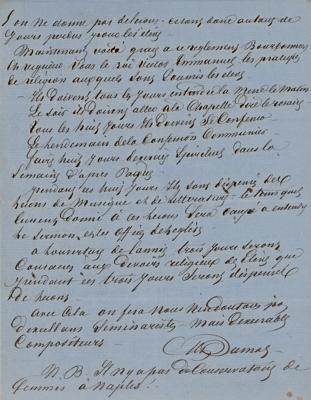 l'on ne donne pas de leçons - ce sont donc autant de
jours perdus pour les élèves
Maintenant voici grâce au règlement Bourbonnien
en vigueur sous le roi Victor Emmanuel les pratiques
de religion auxquels sont soumis les élèves
- Ils doivent tous les jours entendre la Messe le matin
Le soir ils doivent aller à la Chapelle dire le rosaire
tous les huit jours ils doivent se Confesser
Le lendemain de la Confession Communier
huit jours Spirituels dans la
Semaine d'après Pâques
Pendant ces huit jours ils sont dispensés des
leçons de Musique et de littérature - le temps que
donné à ces leçons sera employé à entendre
le sermon et les offices de l'église
à l'ouverture de l'année trois jours seront
Consacrés aux devoirs religieux de sorte que
pendant ces trois jours seront dispensés
de leçons
Avec cela on fera nous n'en doutons pas
d'excellents Seminaristes - Mais d'exécrables
Compositeurs -
Alx Dumas
N. B. Il n'y a pas de Conservatoire de
femmes à Naples.